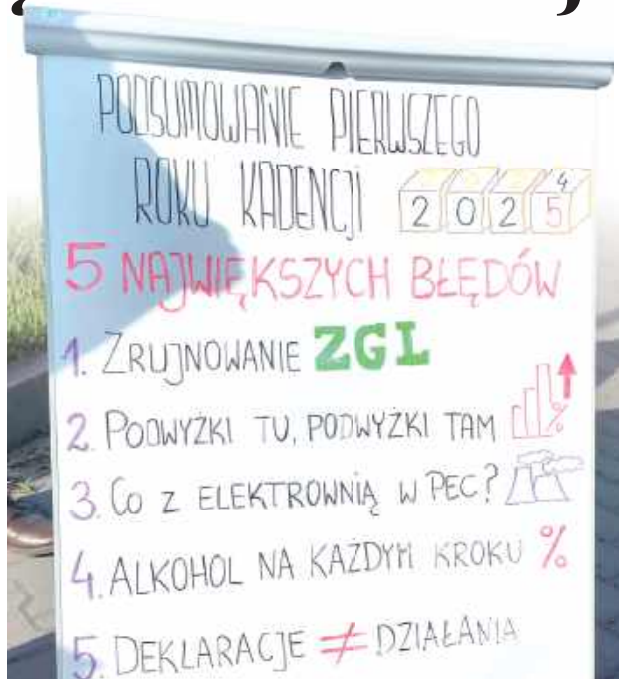 PODSUMOWANIE PIERWSZEGO
ROKU KADENCJI 2025 4
5 NAJWIĘKSZYCH BŁĘDÓW
1. ZRUJNOWANIE ZGL
2. PODWYŻKI TU, PODWYŻKI TAM %
3. CO Z ELEKTROWNIĄ W PEC?
4. ALKOHOL NA KAŻDYM KROKU %
5. DEKLARACJE ≠ DZIAŁANIA